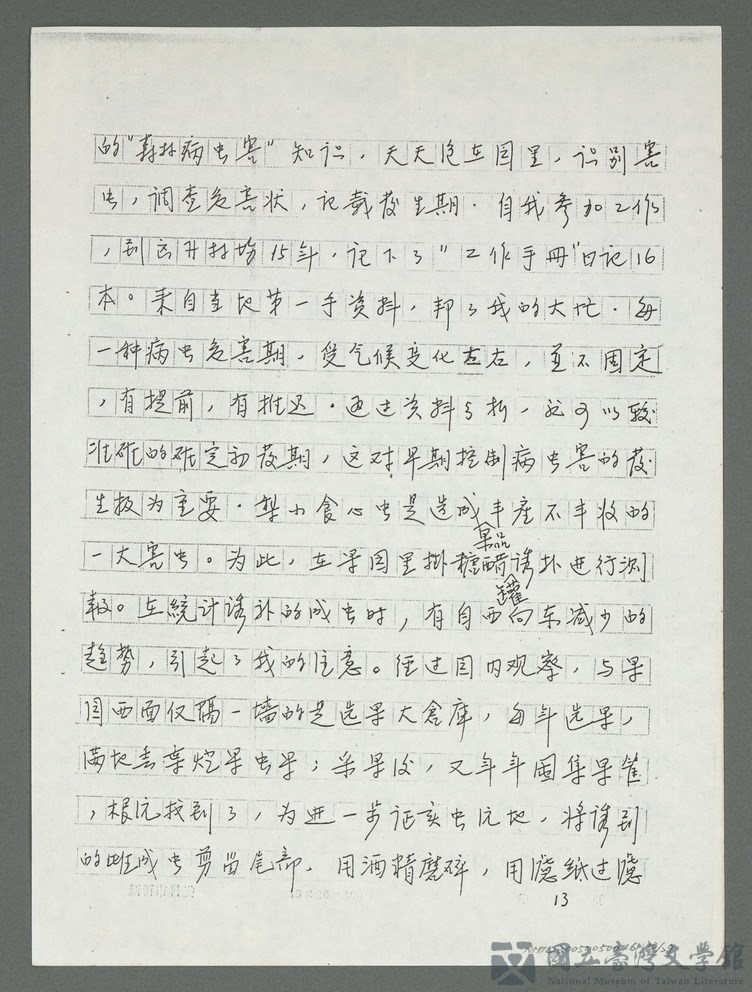 的"森林病虫害"知识，天天泡在园里，识别害
虫，调查危害状，记载发生期．自我参加工作
，到这升林场15年，记下了"工作手冊"日记16
本。来自当地第一手资料，邦了我的大忙．每
一种病虫危害期，受气候变化左右，並不固定
，有提前，有推迟．通过资料分析，就可以较
准确的确定初发期，这对早期控制病虫害的发
生极为重要．梨小食心虫是造成丰産不丰收的
果品
一大害虫。为此，在果园里掛糖醋诱扑进行测
罐
報。在統计诱补的成虫时，有自西向东减少的
趋势，引起了我的注意。经过园内观察，与果
园西面仅隔一墙的是选果大倉庫，每年选果，
满地丢棄烂果虫果；采果後，又年年囤集果筐
，根沅找到了，为进一步证实虫沅地，将诱到
的雌成虫剪出尾部．用酒精磨碎，用濾纸过濾
13
國立臺灣文學館
National Museum of Taiwan Literature